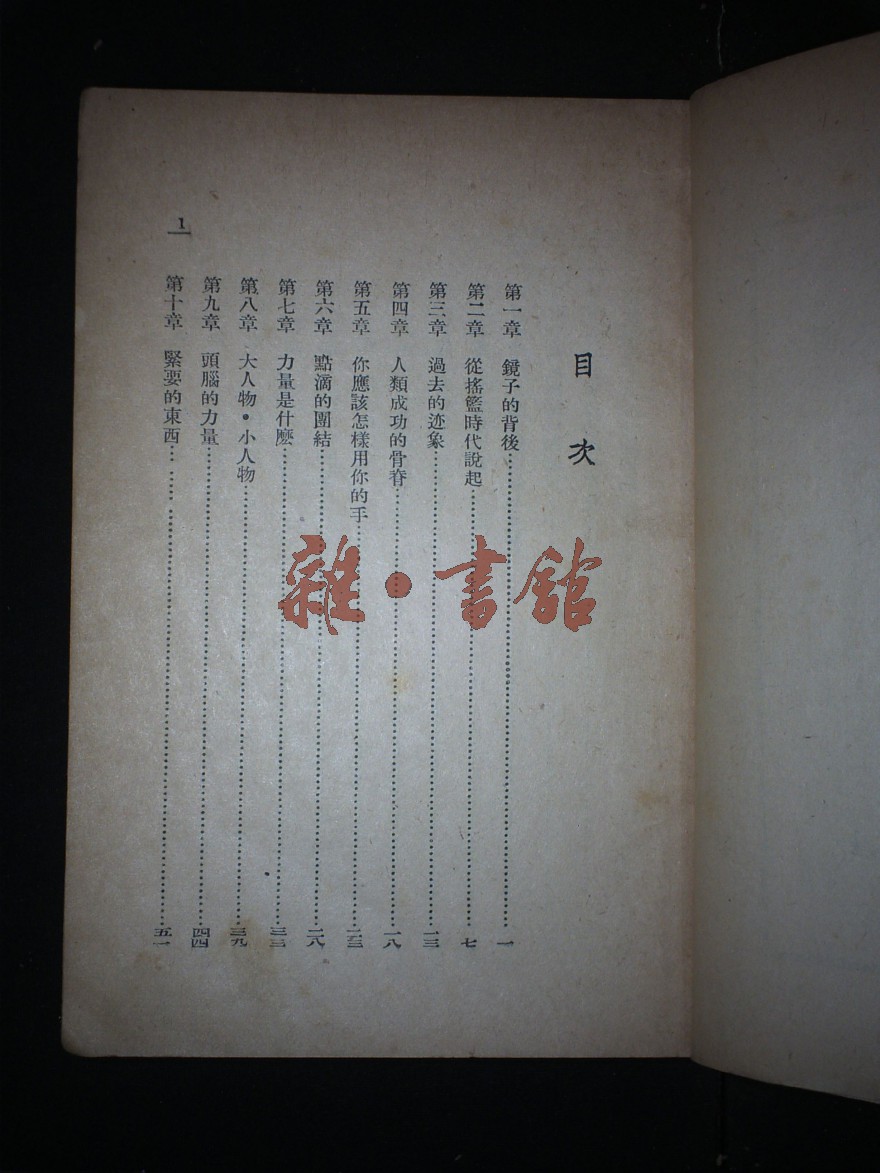 目次
第一章 鏡子的背後……一
第二章 從搖籃時代說起……七
第三章 過去的迹象……一三
第四章 人類成功的骨脊……一八
第五章 你應該怎樣用你的手……二三
第六章 點滴的團結……二八
第七章 力量是什麼……三三
第八章 大人物·小人物……三九
第九章 頭腦的力量……四四
第十章 緊要的東西……五一
1
雜·書館